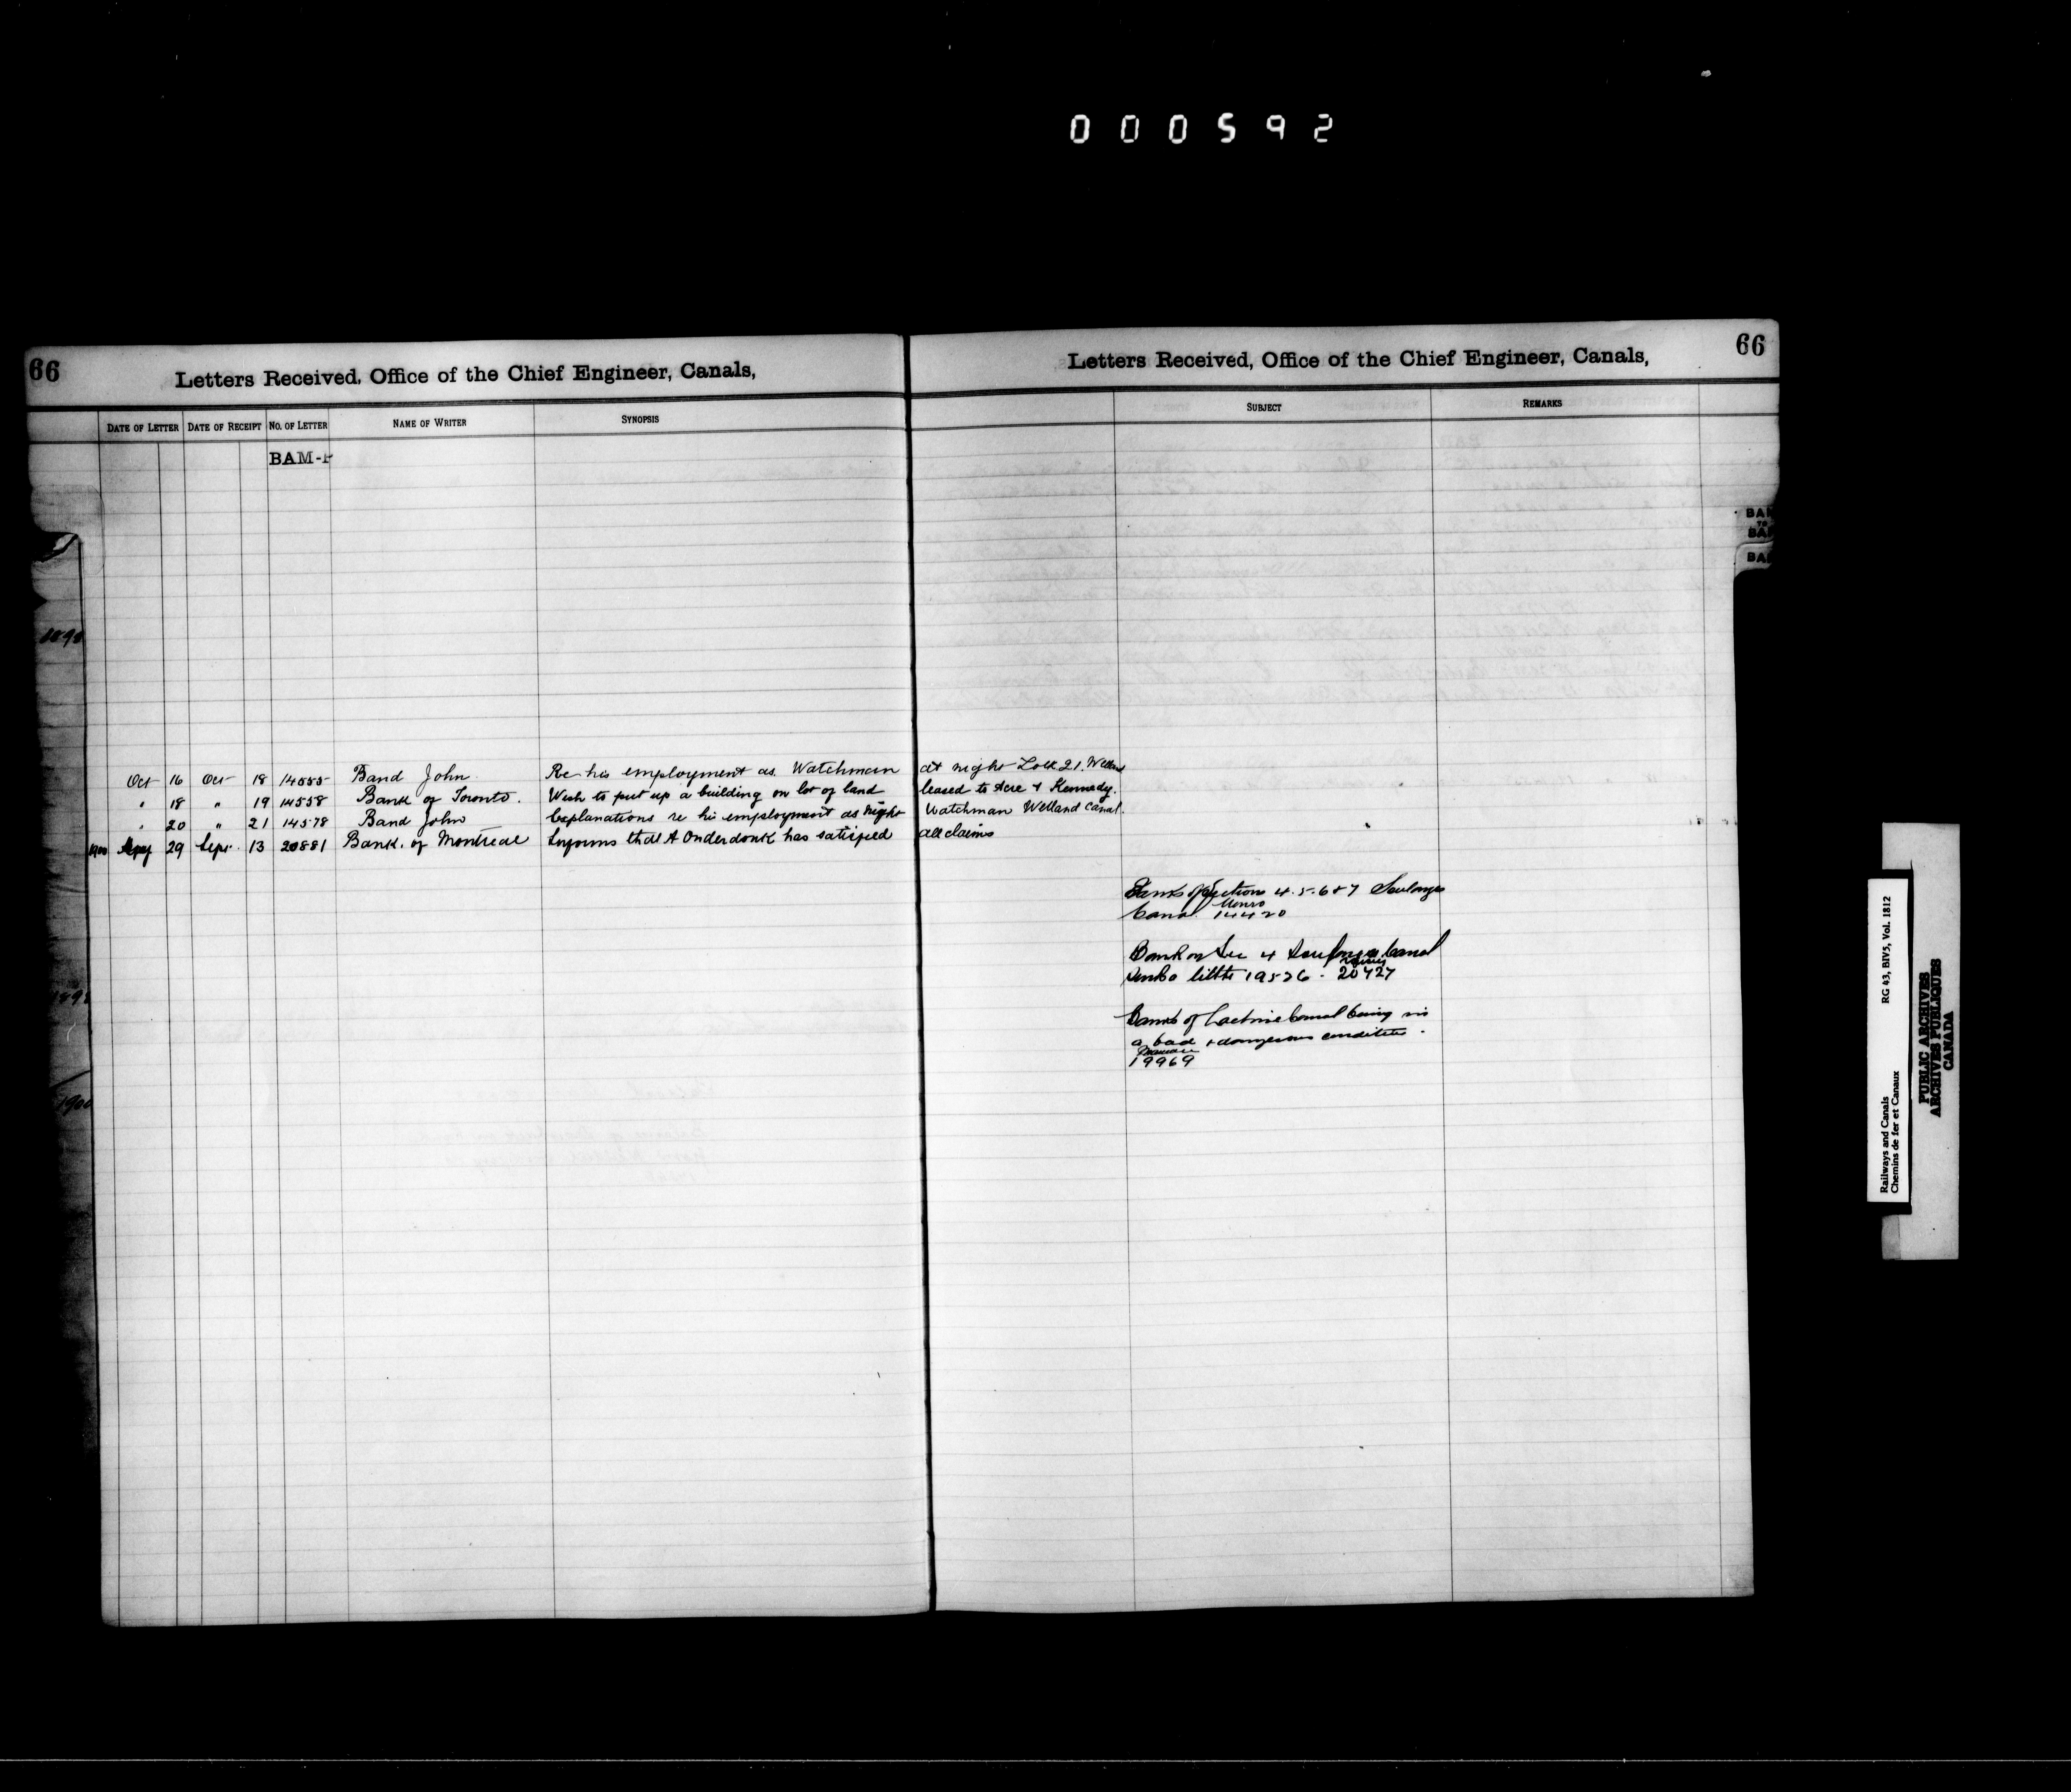 000592
66
Letters Received, Office of the Chief Engineer, Canals,
DATE OF LETTER DATE OF RECEIPT NO. OF LETTER NAME OF WRITER SYNOPSIS
BAM-
Oct 16 Oct 18 14555 Band John Re his employment as Watchman at night Lock 21. Welland
" 18 " 19 14558 Bank of Toronto. Wish to put up a building on lot of land leased to Acre & Kennedy.
" 20 " 21 14578 Band John Explanations re his employment as Night Watchman Welland Canal.
1900 29 Sept. 13 20881 Bank. of Montreal Informs that A Onderdonk has satisfied all claims
1900
Letters Received, Office of the Chief Engineer, Canals,
66
SUBJECT REMARKS
Banks of Sections 4.5.6 & 7 Soulanges
Munro
Canal 14420
Bank on Sec 4 Soulanges Canal
little 19526 . 20427
Banks of Lachine Canal being in
a bad & dangerous condition .
19969
BAM
TO
BA
BA
Railways and Canals RG 43, BIV5, Vol. 1812
Chemins de fer et Canaux
PUBLIC ARCHIVES
ARCHIVES PUBLIQUES
CANADA